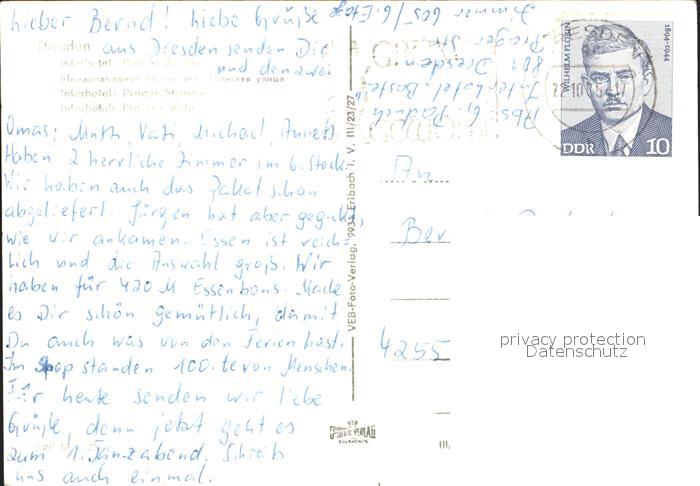 Lieber Bernd! Liebe Grüße
aus Dresden senden Dir
und den zwei
Omas; Mutti, Vati, Michael, Annett.
Haben 2 herrliche Zimmer im 6. Stock.
Wir haben auch das Paket schon
abgeliefert. Jürgen hat aber geguckt,
wie wir ankamen. Essen ist reich-
lich und die Auswahl groß. Wir
haben für 420 M Essenbons. Mache
es Dir schön gemütlich, damit
Du auch was von den Ferien hast.
Im Shop standen 100-te von Menschen.
Für heute senden wir liebe
Grüße, denn jetzt geht es
zum 1. Tanzabend. Schreib
uns auch einmal.
Dresden
Interhotels Prager Straße
Interhotels Prager Strasse
VEB-Foto-Verlag, 9934 Erlbach i. V. III/23/27
Interhotel "Bastei"
801 Dresden
Prager Str.
Zimmer 605 / 6. Etage
WILHELM FLORIN
1894-1944
DDR 10
An
Ber
4255
privacy protection
Datenschutz